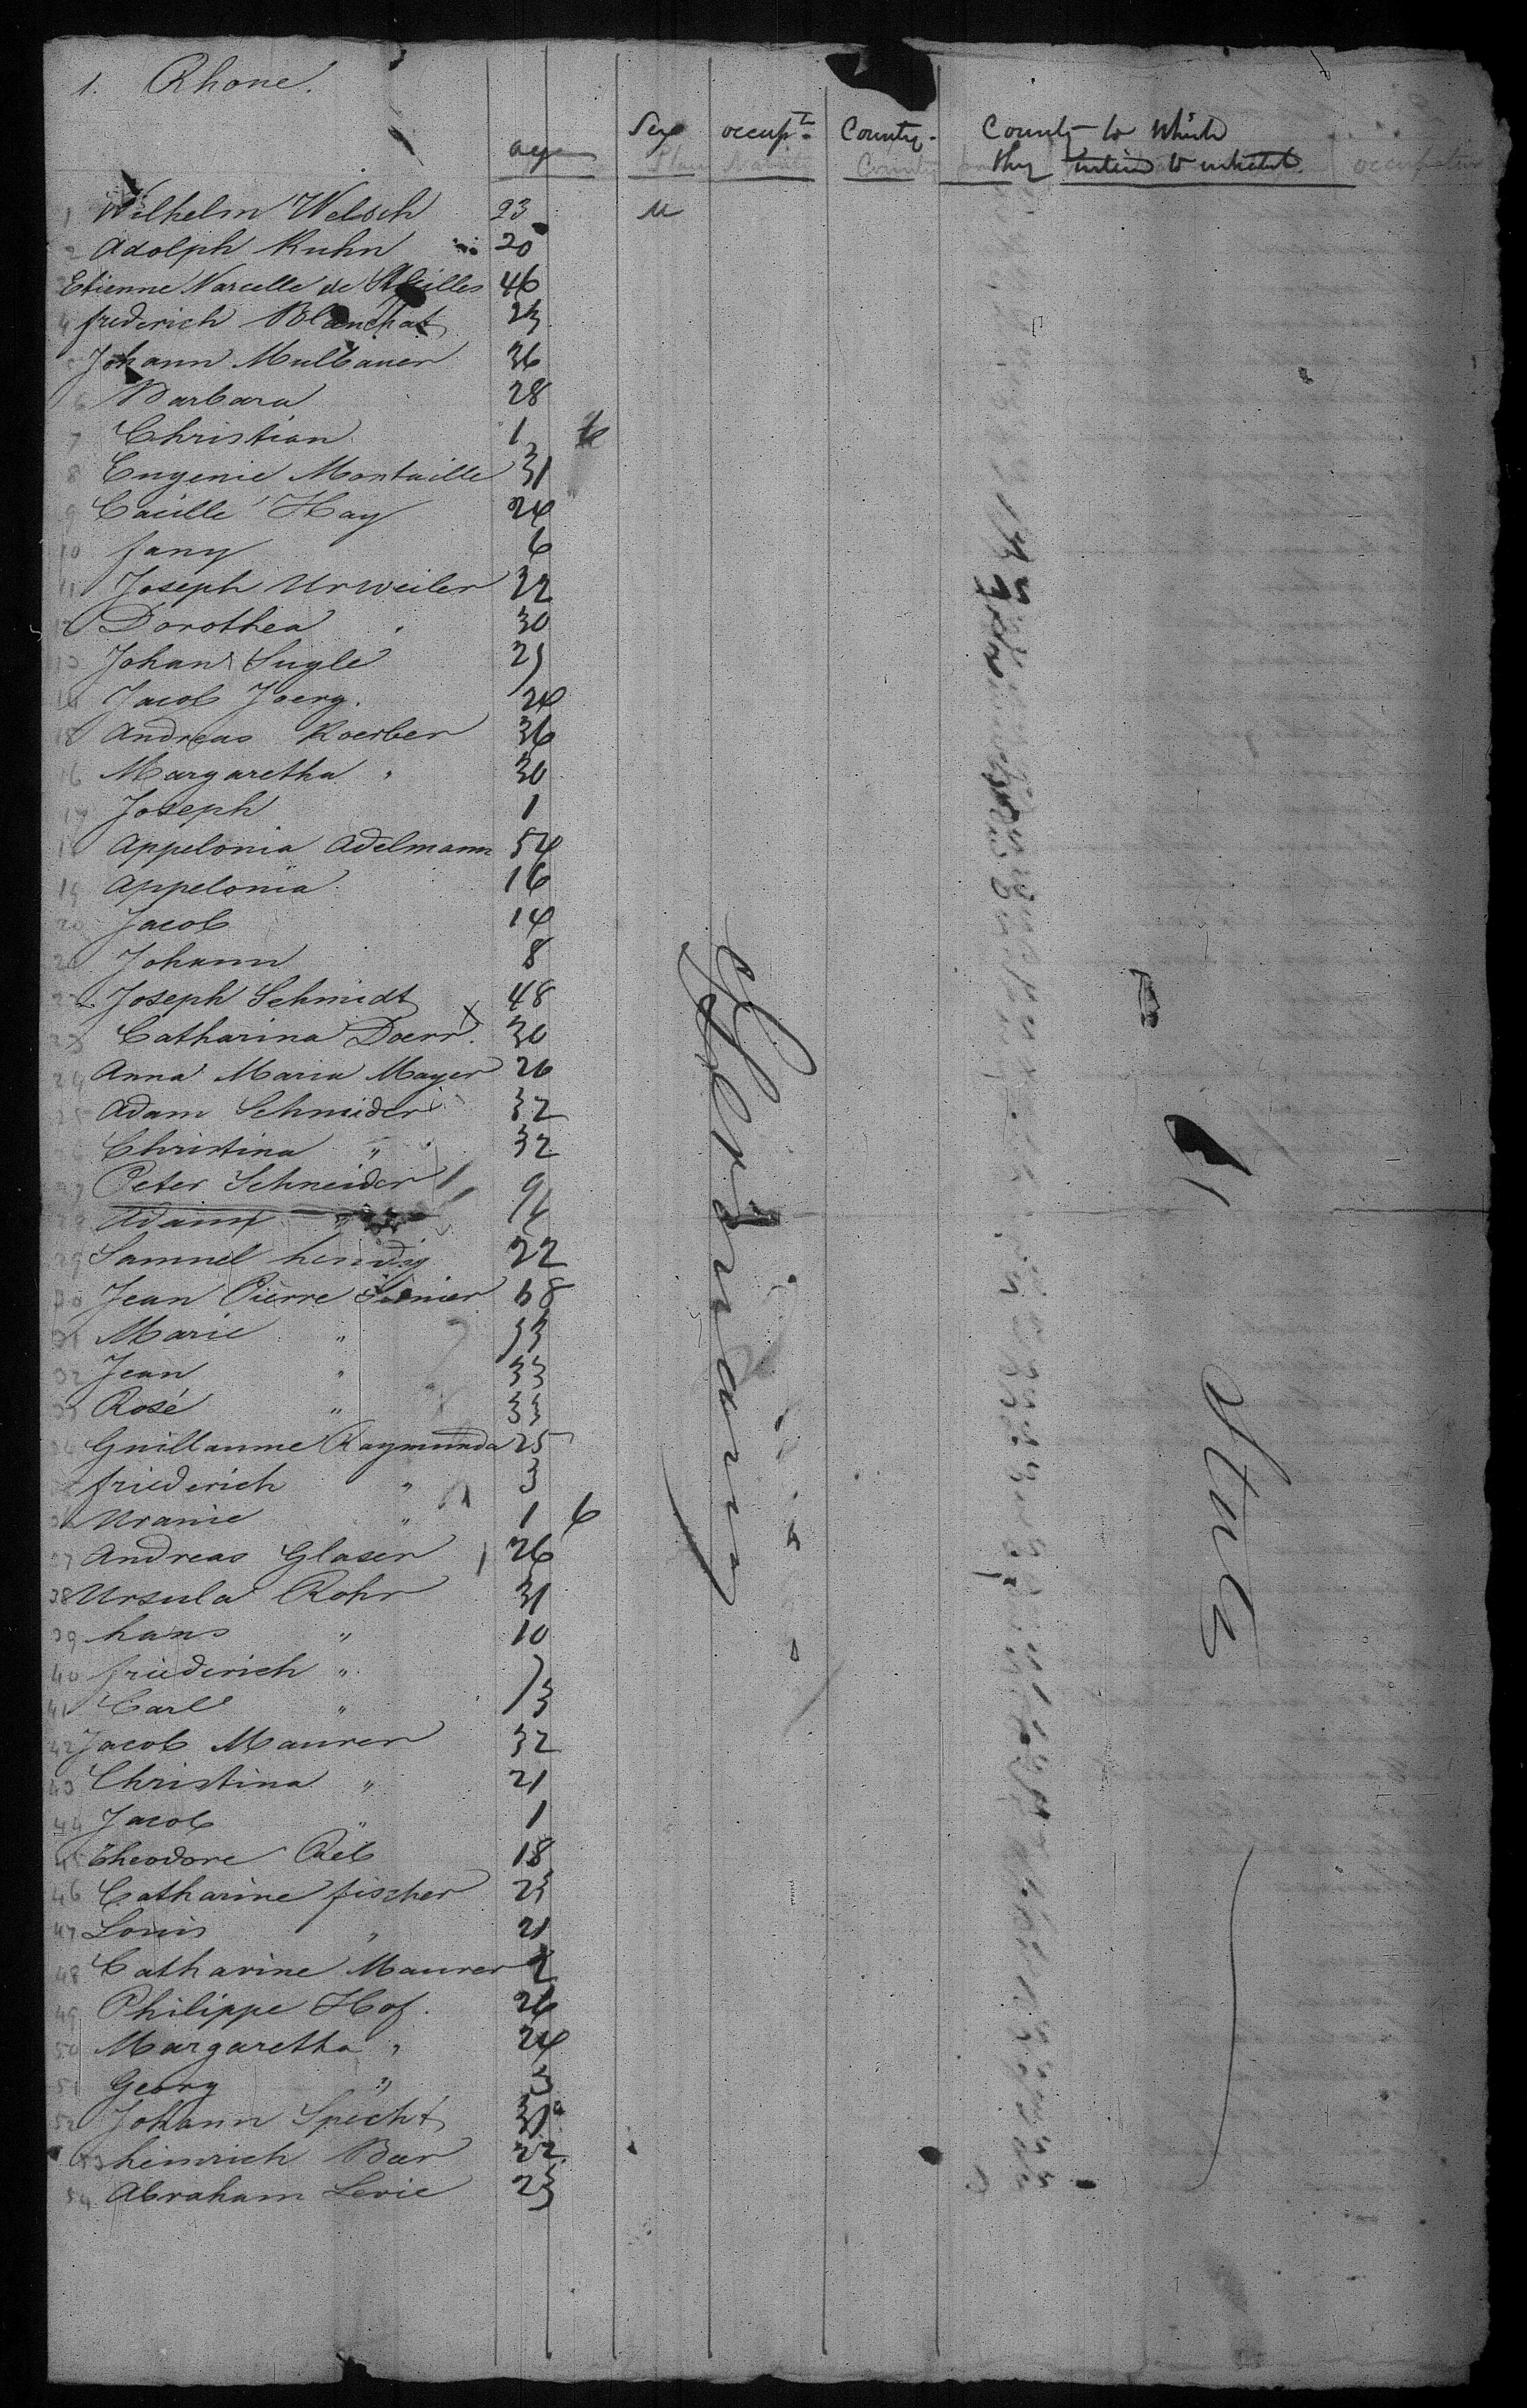 1. Rhone.
age Sex occupt. Country. Country to which
they intend to inhabit.
1 Wilhelm Welsch 23 M
2 Adolph Kuhn 20
Etienne Narcelle de 46
4 friederich Blanchat 23
Johann Mulbauer 36
6 Barbara 28
7 Christian 1 6
8 Eugenie Montaille 31
9 Caicille Hay 24
10 fany 6
11 Joseph Urweiler 32
12 Dorothea " 30
13 Johan Sugle 25
14 Jacob Joerg. 24
15 Andreas Koerber 36
16 Margaretha " 30
17 Joseph 1
18 Appelonia Adelmann 54
19 Appelonia 16
20 Jacob 14
21 Johann 8
22 Joseph Schmidt 48
23 Catharina Doerr. 30
24 Anna Maria Mayer 26
25 Adam Schneider 32
26 Christina " 32
27 Peter Schneider 9
28 Adam "
29 Samuel hendig 22
30 Jean Pierre 68
31 Marie " 53
32 Jean " 33
33 Rosé " 33
34 Guillaume Raymunda 25
35 friederich " 3
36 Uranie " 1 6
37 Andreas Glaser 26
38 Ursula Rohr 31
39 hans " 10
40 friederich "
41 Carl " 3
42 Jacob Maurer 32
43 Christina " 21
44 Jacob " 1
45 Theodore Reb 18
46 Catharine fischer 23
47 Louis " 21
48 Catharine Maurer 2
49 Philippe Hof. 26
50 Margaretha " 24
51 Georg " 3
52 Johann Specht 31
53 heinrich Baer 22
54 Abraham Levie 23
Germany